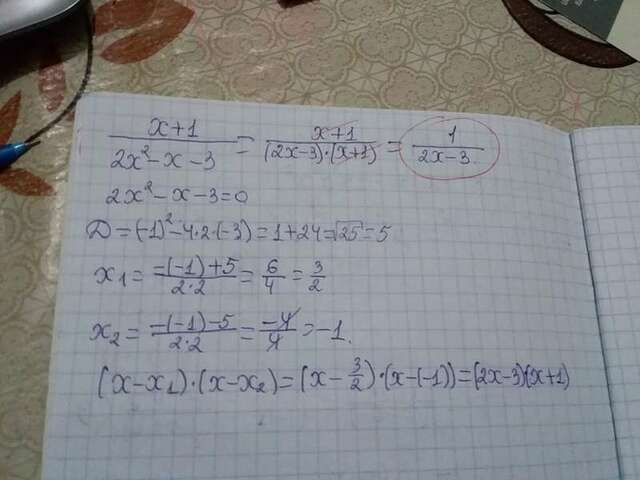 x+1 / 2x²-x-3 = x+1 / (2x-3)·(x+1) = 1 / 2x-3
2x²-x-3=0
D=(-1)²-4·2·(-3)=1+24=√25=5
x₁= -(-1)+5 / 2·2 = 6/4 = 3/2
x₂= -(-1)-5 / 2·2 = -4/4 =-1.
(x-x₁)·(x-x₂)=(x-3/2)·(x-(-1))=(2x-3)(x+1)